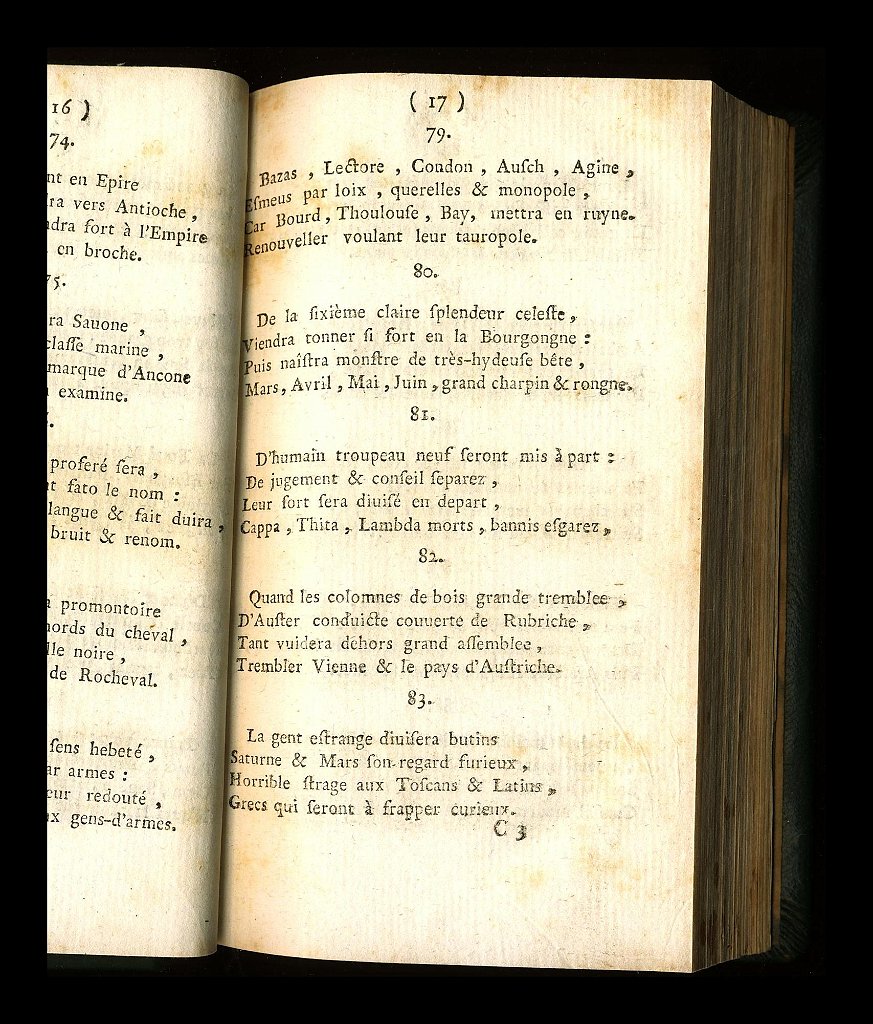 16 )
74.
nt en Epire
ra vers Antioche ,
dra fort à l'Empire
en broche.
75.
ra Sauone ,
claſſe marine ,
marque d'Ancone
examine.
proferé ſera ,
t fato le nom :
langue & fait duira ,
bruit & renom.
a promontoire
nords du cheval ,
lle noire ,
de Rocheval.
ſens hebeté ,
ar armes :
eur redouté ,
ux gens-d'armes.
( 17 )
79.
Bazas , Lectore , Condon , Auſch , Agine ,
Eſmeus par loix , querelles & monopole ,
Car Bourd , Thoulouſe , Bay, mettra en ruyne.
Renouveller voulant leur tauropole.
80.
De la ſixième claire ſplendeur celeſte ,
Viendra tonner ſi fort en la Bourgongne :
Puis naîſtra monſtre de très-hydeuſe bête ,
Mars , Avril , Mai , Juin , grand charpin & rongne.
81.
D'humain troupeau neuf ſeront mis à part :
De jugement & conſeil ſeparez ,
Leur ſort ſera diuiſé en depart ,
Cappa , Thita , Lambda morts , bannis eſgarez ,
82.
Quand les colomnes de bois grande tremblee ,
D'Auſter conduicte couuerte de Rubriche ,
Tant vuidera dehors grand aſſemblee ,
Trembler Vienne & le pays d'Auſtriche.
83.
La gent eſtrange diuiſera butins
Saturne & Mars ſon regard furieux ,
Horrible ſtrage aux Toſcans & Latins ,
Grecs qui ſeront à frapper curieux.
C 3